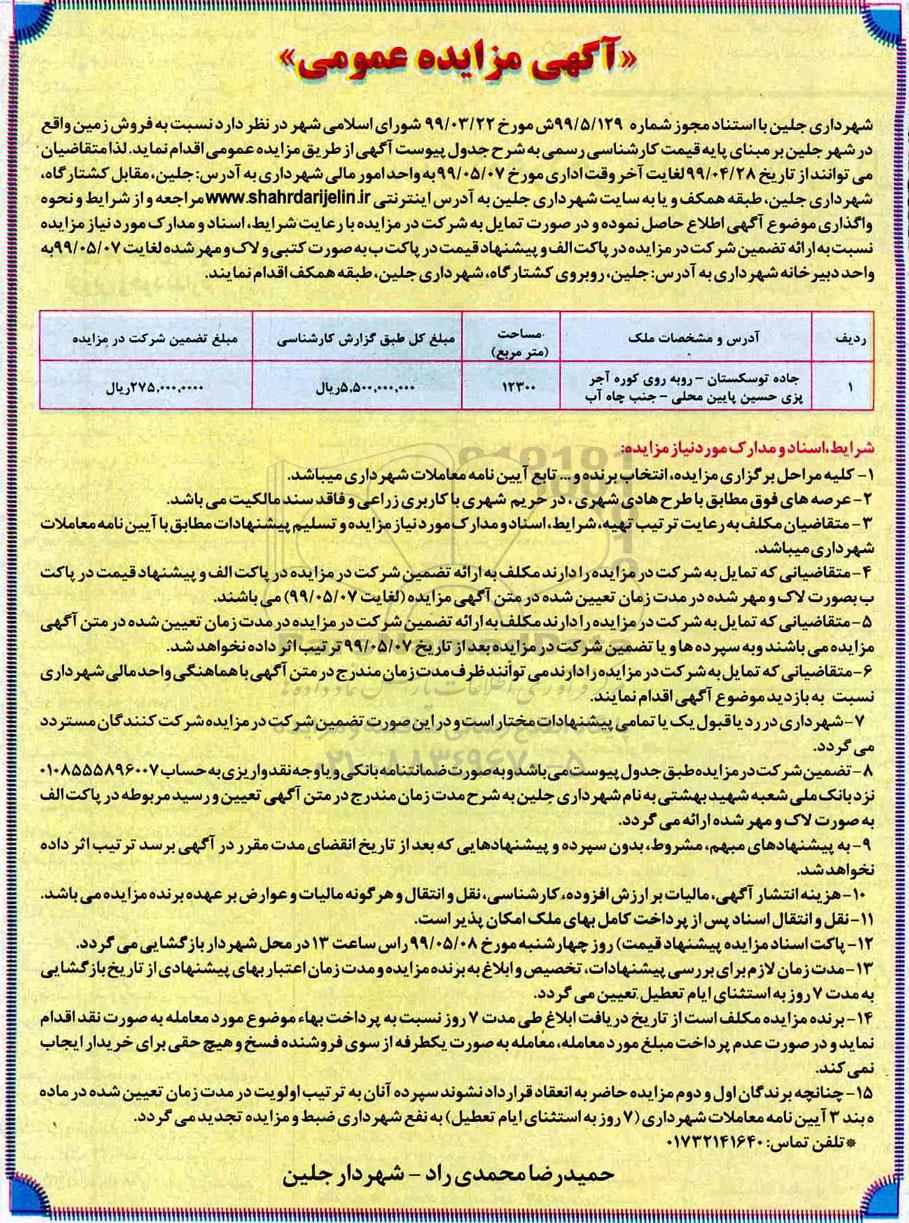 «آگهی مزایده عمومی»
شهرداری جلین با استناد مجوز شماره ۹۹/۵/۱۲۹ش مورخ ۹۹/۰۳/۲۲ شورای اسلامی شهر در نظر دارد نسبت به فروش زمین واقع
در شهر جلین بر مبنای پایه قیمت کارشناسی رسمی به شرح جدول پیوست آگهی از طریق مزایده عمومی اقدام نماید. لذا متقاضیان
می توانند از تاریخ ۹۹/۰۴/۲۸ لغایت آخر وقت اداری مورخ ۹۹/۰۵/۰۷ به واحد امور مالی شهرداری به آدرس: جلین، مقابل کشتارگاه،
شهرداری جلین، طبقه همکف و یا به سایت شهرداری جلین به آدرس اینترنتی www.shahrdarijelin.ir مراجعه و از شرایط و نحوه
واگذاری موضوع آگهی اطلاع حاصل نموده و در صورت تمایل به شرکت در مزایده با رعایت شرایط، اسناد و مدارک مورد نیاز مزایده
نسبت به ارائه تضمین شرکت در مزایده در پاکت الف و پیشنهاد قیمت در پاکت ب به صورت کتبی و لاک و مهر شده لغایت ۹۹/۰۵/۰۷ به
واحد دبیرخانه شهرداری به آدرس: جلین، روبروی کشتارگاه، شهرداری جلین، طبقه همکف اقدام نمایند.
ردیف آدرس و مشخصات ملک مساحت (متر مربع) مبلغ کل طبق گزارش کارشناسی مبلغ تضمین شرکت در مزایده
۱ جاده توسکستان – روبه روی کوره آجر ۱۲۳۰۰ ۵,۵۰۰,۰۰۰,۰۰۰ریال ۲۷۵,۰۰۰,۰۰۰۰ریال
پزی حسین پایین محلی – جنب چاه آب
شرایط، اسناد و مدارک مورد نیاز مزایده:
۱- کلیه مراحل برگزاری مزایده، انتخاب برنده و ... تابع آیین نامه معاملات شهرداری میباشد.
۲- عرصه های فوق مطابق با طرح هادی شهری ، در حریم شهری با کاربری زراعی و فاقد سند مالکیت می باشد.
۳- متقاضیان مکلف به رعایت ترتیب تهیه، شرایط، اسناد و مدارک مورد نیاز مزایده و تسلیم پیشنهادات مطابق با آیین نامه معاملات
شهرداری میباشد.
۴- متقاضیانی که تمایل به شرکت در مزایده را دارند مکلف به ارائه تضمین شرکت در مزایده در پاکت الف و پیشنهاد قیمت در پاکت
ب بصورت لاک و مهر شده در مدت زمان تعیین شده در متن آگهی مزایده (لغایت ۹۹/۰۵/۰۷) می باشند.
۵- متقاضیانی که تمایل به شرکت در مزایده را دارند مکلف به ارائه تضمین شرکت در مزایده در مدت زمان تعیین شده در متن آگهی
مزایده می باشند و به سپرده ها و یا تضمین شرکت در مزایده بعد از تاریخ ۹۹/۰۵/۰۷ ترتیب اثر داده نخواهد شد.
۶- متقاضیانی که تمایل به شرکت در مزایده را دارند می توانند ظرف مدت زمان مندرج در متن آگهی با هماهنگی واحد مالی شهرداری
نسبت به بازدید موضوع آگهی اقدام نمایند.
۷- شهرداری در رد یا قبول یک یا تمامی پیشنهادات مختار است و در این صورت تضمین شرکت در مزایده شرکت کنندگان مسترد
می گردد.
۸- تضمین شرکت در مزایده طبق جدول پیوست می باشد و به صورت ضمانتنامه بانکی و یا وجه نقد واریزی به حساب ۰۱۰۸۵۵۵۸۹۶۰۰۷
نزد بانک ملی شعبه شهید بهشتی به نام شهرداری جلین به شرح مدت زمان مندرج در متن آگهی تعیین و رسید مربوطه در پاکت الف
به صورت لاک و مهر شده ارائه می گردد.
۹- به پیشنهادهای مبهم، مشروط، بدون سپرده و پیشنهادهایی که بعد از تاریخ انقضای مدت مقرر در آگهی برسد ترتیب اثر داده
نخواهد شد.
۱۰- هزینه انتشار آگهی، مالیات بر ارزش افزوده، کارشناسی، نقل و انتقال و هر گونه مالیات و عوارض بر عهده برنده مزایده می باشد.
۱۱- نقل و انتقال اسناد پس از پرداخت کامل بهای ملک امکان پذیر است.
۱۲- پاکت اسناد مزایده پیشنهاد قیمت) روز چهارشنبه مورخ ۹۹/۰۵/۰۸ راس ساعت ۱۳ در محل شهردار بازگشایی می گردد.
۱۳- مدت زمان لازم برای بررسی پیشنهادات، تخصیص و ابلاغ به برنده مزایده و مدت زمان اعتبار بهای پیشنهادی از تاریخ بازگشایی
به مدت ۷ روز به استثنای ایام تعطیل تعیین می گردد.
۱۴- برنده مزایده مکلف است از تاریخ دریافت ابلاغ طی مدت ۷ روز نسبت به پرداخت بهاء موضوع مورد معامله به صورت نقد اقدام
نماید و در صورت عدم پرداخت مبلغ مورد معامله، معامله به صورت یکطرفه از سوی فروشنده فسخ و هیچ حقی برای خریدار ایجاب
نمی کند.
۱۵- چنانچه برندگان اول و دوم مزایده حاضر به انعقاد قرارداد نشوند سپرده آنان به ترتیب اولویت در مدت زمان تعیین شده در ماده
۵ بند ۳ آیین نامه معاملات شهرداری (۷ روز به استثنای ایام تعطیل) به نفع شهرداری ضبط و مزایده تجدید می گردد.
*تلفن تماس: ۰۱۷۳۲۱۴۱۶۴۰
حمیدرضا محمدی راد – شهردار جلین